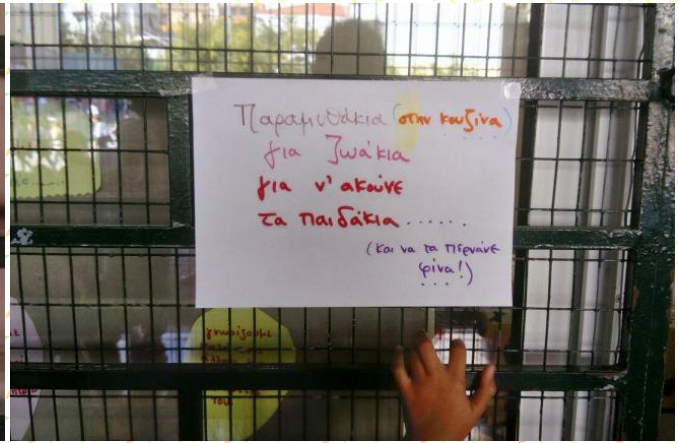 Παραμυθάκια (στην κουζίνα)
για ζωάκια
για ν' ακούνε
τα παιδάκια ......
(και να τα περνάνε
φίνα!)
γνωρίζουμε